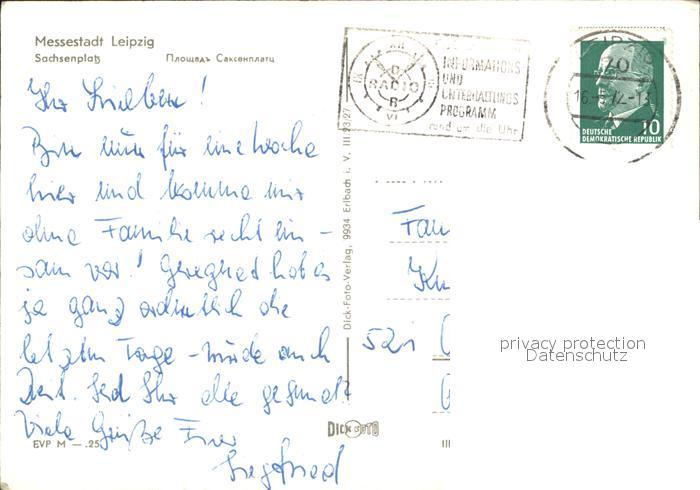 Messestadt Leipzig
Sachsenplatz Площадь Саксенплатц
Ihr Lieben!
Bin nun für eine Woche
hier und komme mir
ohne Familie recht ein-
sam vor! Geregnet hat es
ja ganz ordentlich die
letzten Tage - würde auch
Zeit. Seid Ihr alle gesund?
Viele Grüße Euer
Siegfried
EVP M — .25
Dick-Foto-Verlag, 9934 Erlbach i. V. III 23/27
DICK FOTO
III
RADIO
DDR
VI
INFORMATIONS
UND
UNTERHALTUNGS
PROGRAMM
rund um die Uhr
LEIPZIG
701
DEUTSCHE
DEMOKRATISCHE REPUBLIK
10
Fam
521
privacy protection
Datenschutz